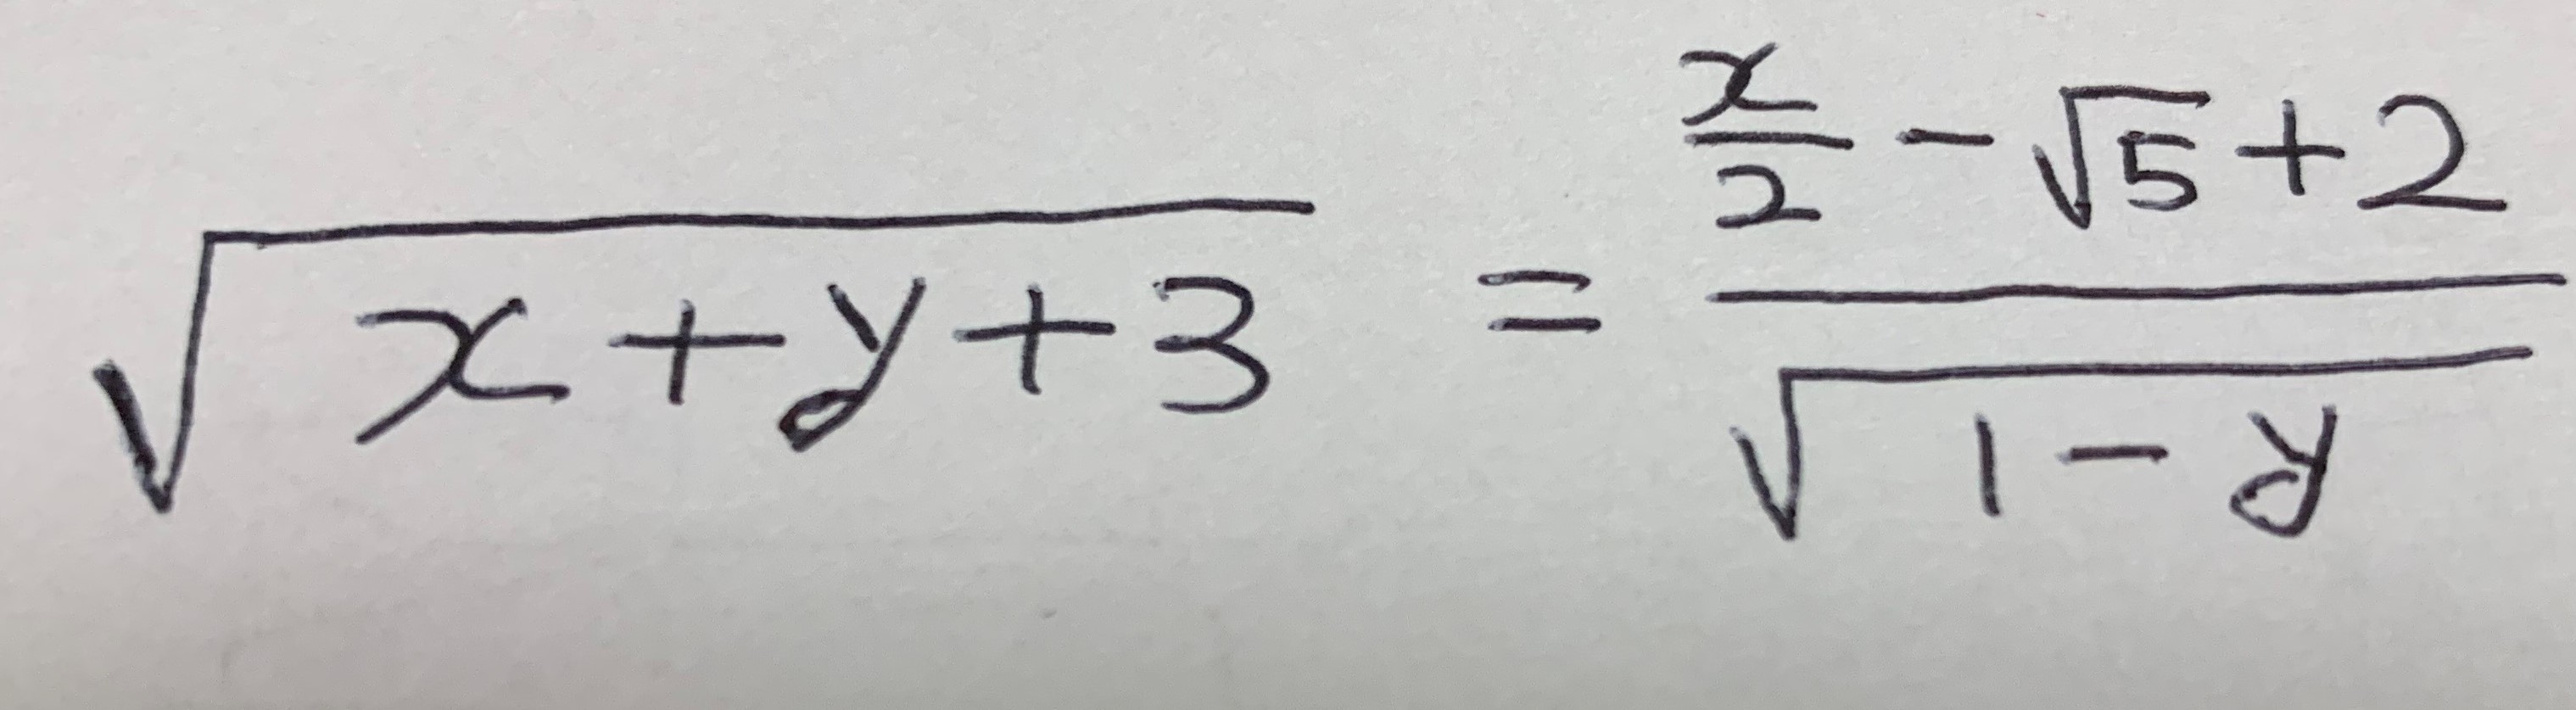 √(x+y+3) = (x/2 - √5 + 2)/√(1-y)